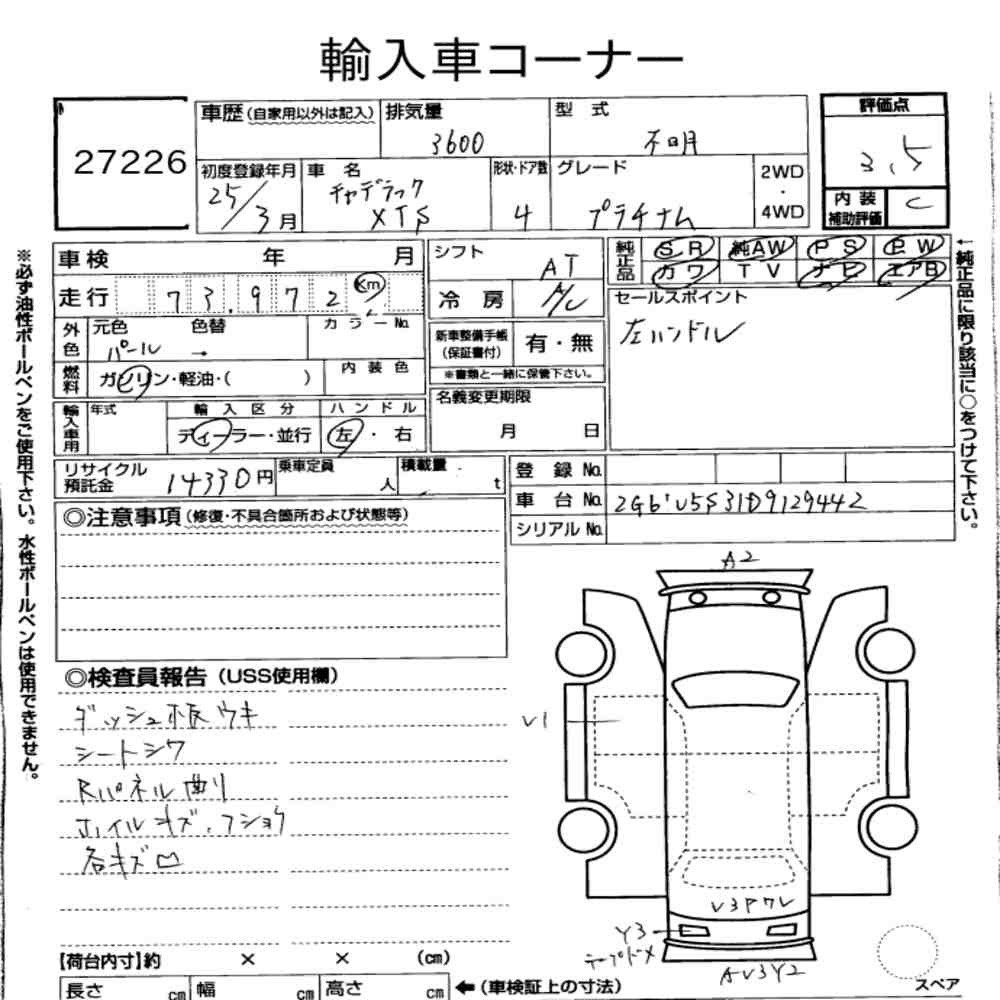 輸入車コーナー
27226
車歴(自家用以外は記入) 排気量 3600 型 式 不明
初度登録年月 25/3月 車 名 キャデラック XTS 形状・ドア数 4 グレード プラチナム 2WD・4WD
評価点 3.5
内装補助評価 C
車検 年 月
走行 73,972 Km
外色 元色 パール 色替 → カラーNo.
燃料 ガソリン・軽油・( ) 内装色
輸入車用 年式 輸入区分 ディーラー・並行 ハンドル 左・右
シフト AT
冷房 A/C
新車整備手帳(保証書付) 有・無
※書類と一緒に保管下さい。
名義変更期限 月 日
純正品 SR 純AW PS PW
カワ TV ナビ エアB
セールスポイント
左ハンドル
リサイクル預託金 14330円 乗車定員 人 積載量 t
登録 No.
車台 No. 2G61U5S31D9129442
シリアル No.
◎注意事項(修復・不具合箇所および状態等)
◎検査員報告(USS使用欄)
ダッシュ板ウキ
シートシワ
Rパネル曲り
ホイルキズ、フショク
各キズ凹
A2
V1
V3P7L
Y3
テープドメ
AV3Y2
スペア
【荷台内寸】約 × × (cm)
長さ cm 幅 cm 高さ cm ←(車検証上の寸法)
※必ず油性ボールペンをご使用下さい。水性ボールペンは使用できません。
←純正品に限り該当に○をつけて下さい。